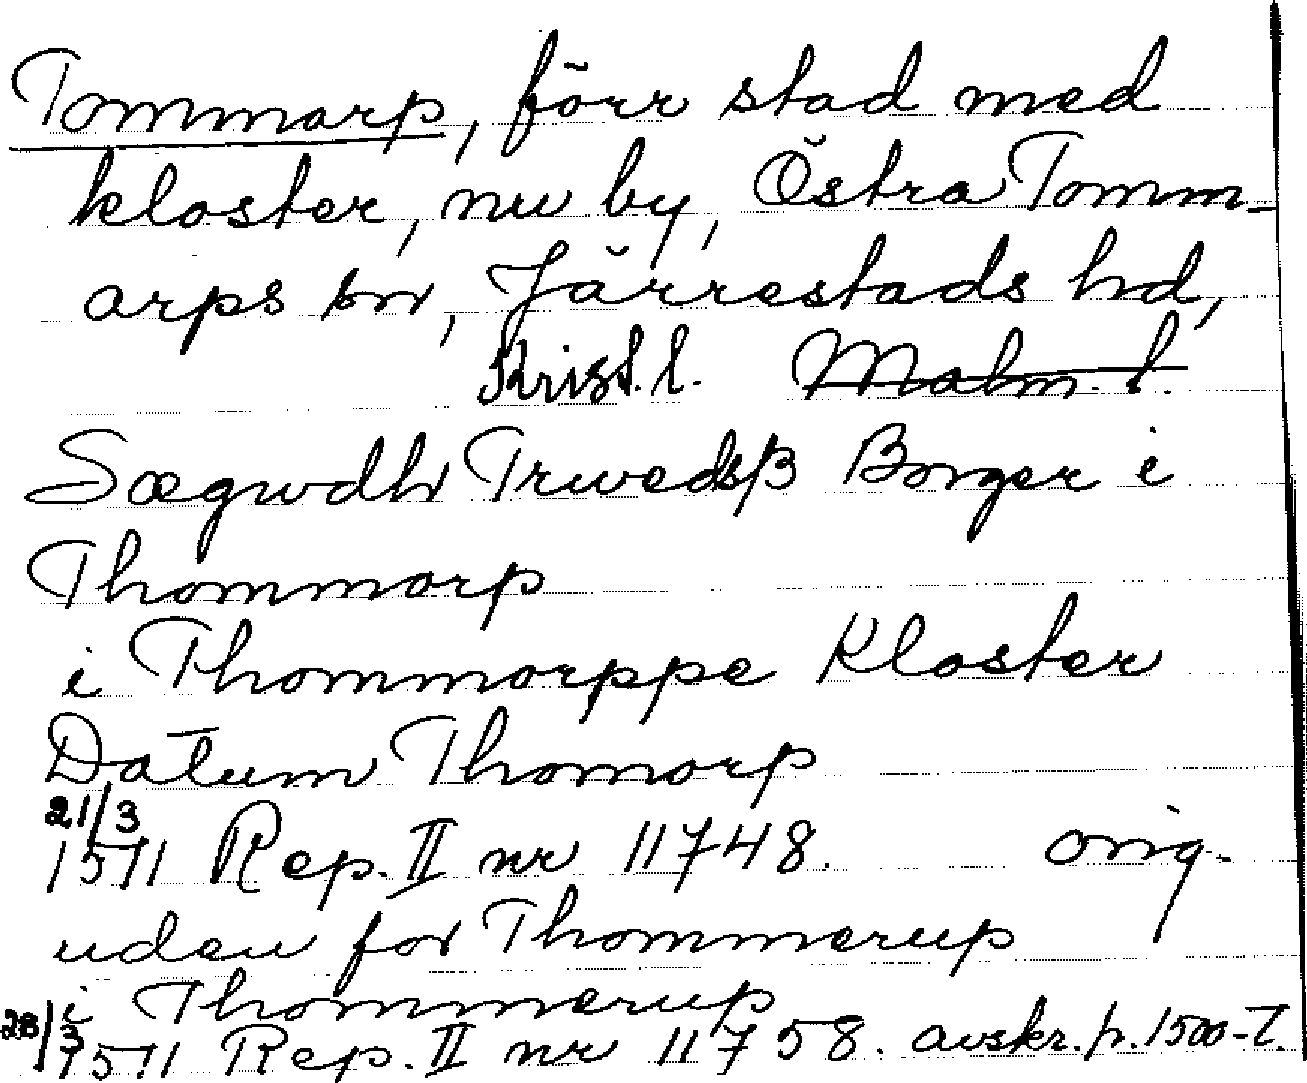 Tommarp, förr stad med
kloster, nu by, Östra Tomm-
arps sn, Järrestads hd,
Krist. l. Malm. l.
Sægwdh Trwedsß Borger i
Thommorp
i Thommorppe Kloster
Datum Thomorp
21/3
1511 Rep. II nr 11748. orig.
uden for Thommerup
i Thommerup
28/3 1511 Rep. II nr 11758. avskr. p. 1500-t.